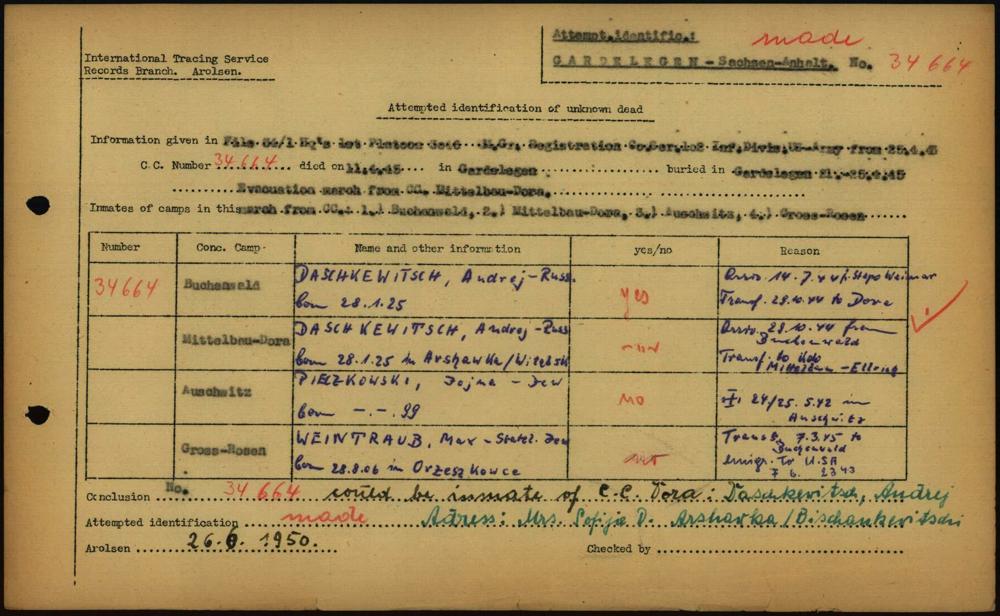 International Tracing Service
Records Branch. Arolsen.
Attempt.identific.: made
GARDELEGEN - Sachsen-Anhalt. No. 34664
Attempted identification of unknown dead
Information given in File 54/1 Hq's 1st Platoon Registration Inf.Divis. Army from 25.4.45
C.C. Number 34664 died on 11.4.45 in Gardelegen buried in Gardelegen 21.-25.4.45
Evacuation march from CC. Mittelbau-Dora.
Inmates of camps in this march from CC.: 1.) Buchenwald, 2.) Mittelbau-Dora, 3.) Auschwitz, 4.) Gross-Rosen
Number Conc. Camp. Name and other information yes/no Reason
34664 Buchenwald DASCHKEWITSCH, Andrej-Russ. born 28.1.25 yes Arriv. 14.7.44 Stapo Weimar
Transf. 28.10.44 to Dora
Mittelbau-Dora DASCHKEWITSCH, Andrej-Russ born 28.1.25 in Arshawka/Witebsk Arriv. 28.10.44 from Buchenwald
Transf. to Kdo Mittelbau-Ellrich
Auschwitz PIECZKOWSKI, - Jew born -.-.99 no 24/25.5.42 in Auschwitz
Gross-Rosen WEINTRAUB, Max - Jew born 28.8.06 in Orzeszkowce Transf. 7.3.45 to Buchenwald
emigr. to USA
Conclusion No. 34664 could be inmate of C.C. Dora: Daschkevitsch, Andrej
Attempted identification made Adress: Mrs. Sofija D. Arshavka/Bischankevitschi
Arolsen 26.6.1950. Checked by